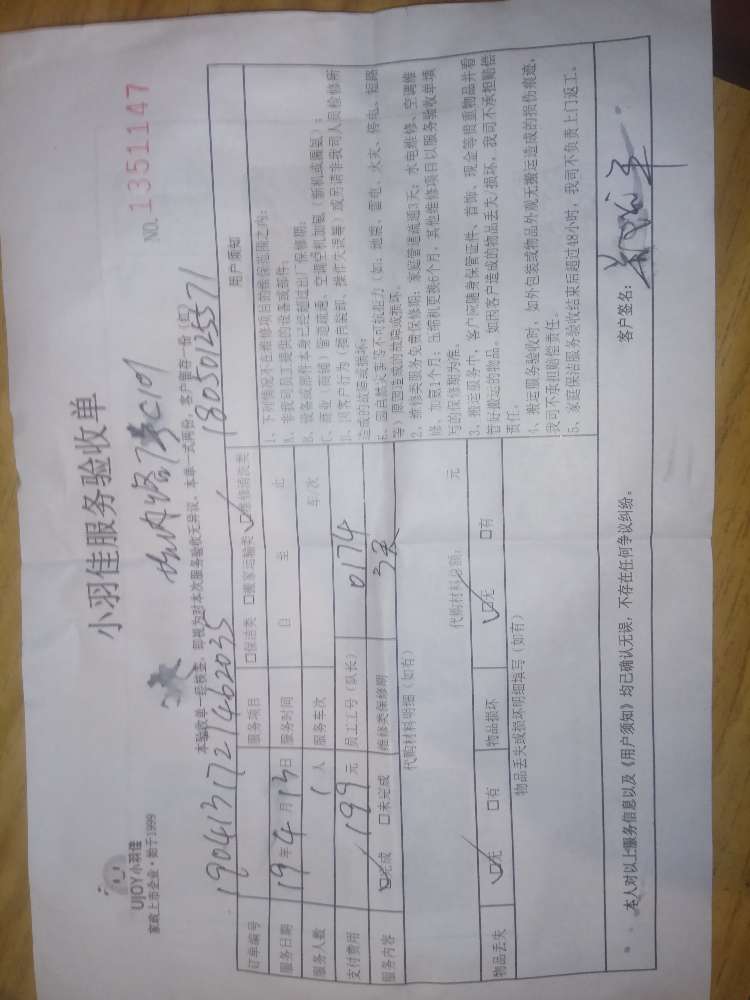 UJOY小羽佳
家政上市企业·始于1999
小羽佳服务验收单
NO. 1351147
C101
本验收单一经核签，即视为对本次服务验收无异议。本单一式两份，客户留存一份（红）
订单编号 190413172146 2035 服务项目 □保洁类 □搬家运输类 ☑维修清洗类
18050125571
服务日期 19年4月13日 服务时间 自 至 止
服务人数 1人 服务车次 车/次
支付费用 199元 员工工号（队长） 0174
服务内容 ☑完成 □未完成 维修类保修期 3天
代购材料明细（如有）
代购材料总额： 元
物品丢失 ☑无 □有 物品损坏 ☑无 □有
物品丢失或损坏明细填写（如有）
用户须知
1、下列情况不在维修项目的维保范围之内：
A、非我司员工提供的设备或部件；
B、设备或部件本身已经超过出厂保修期；
C、商业（商铺）管道疏通、空调空机加氨（新机或漏氨）；
D、因客户行为（擅自装卸、操作失误等）或另请非我司人员检修所
造成的故障或损坏。
E、因自然灾害等不可抗拒力（如：地震、雷电、火灾、停电、短路
等）原因造成的故障或损坏。
2、维修类服务免费保修期：家庭管道疏通3天；水电维修、空调维
修、加氨1个月；压缩机更换6个月，其他维修项目以服务验收单填
写的保修期为准。
3、搬运服务中，客户应随身保管证件、首饰、现金等贵重物品并看
管好搬运的物品。如因客户造成的物品丢失/损坏，我司不承担赔偿
责任。
4、搬运服务验收时，如外包装或物品外观无搬运造成的损伤痕迹，
我司不承担赔偿责任。
5、家庭保洁服务验收结束后超过48小时，我司不负责上门返工。
本人对以上服务信息以及《用户须知》均已确认无误，不存在任何争议纠纷。
客户签名：